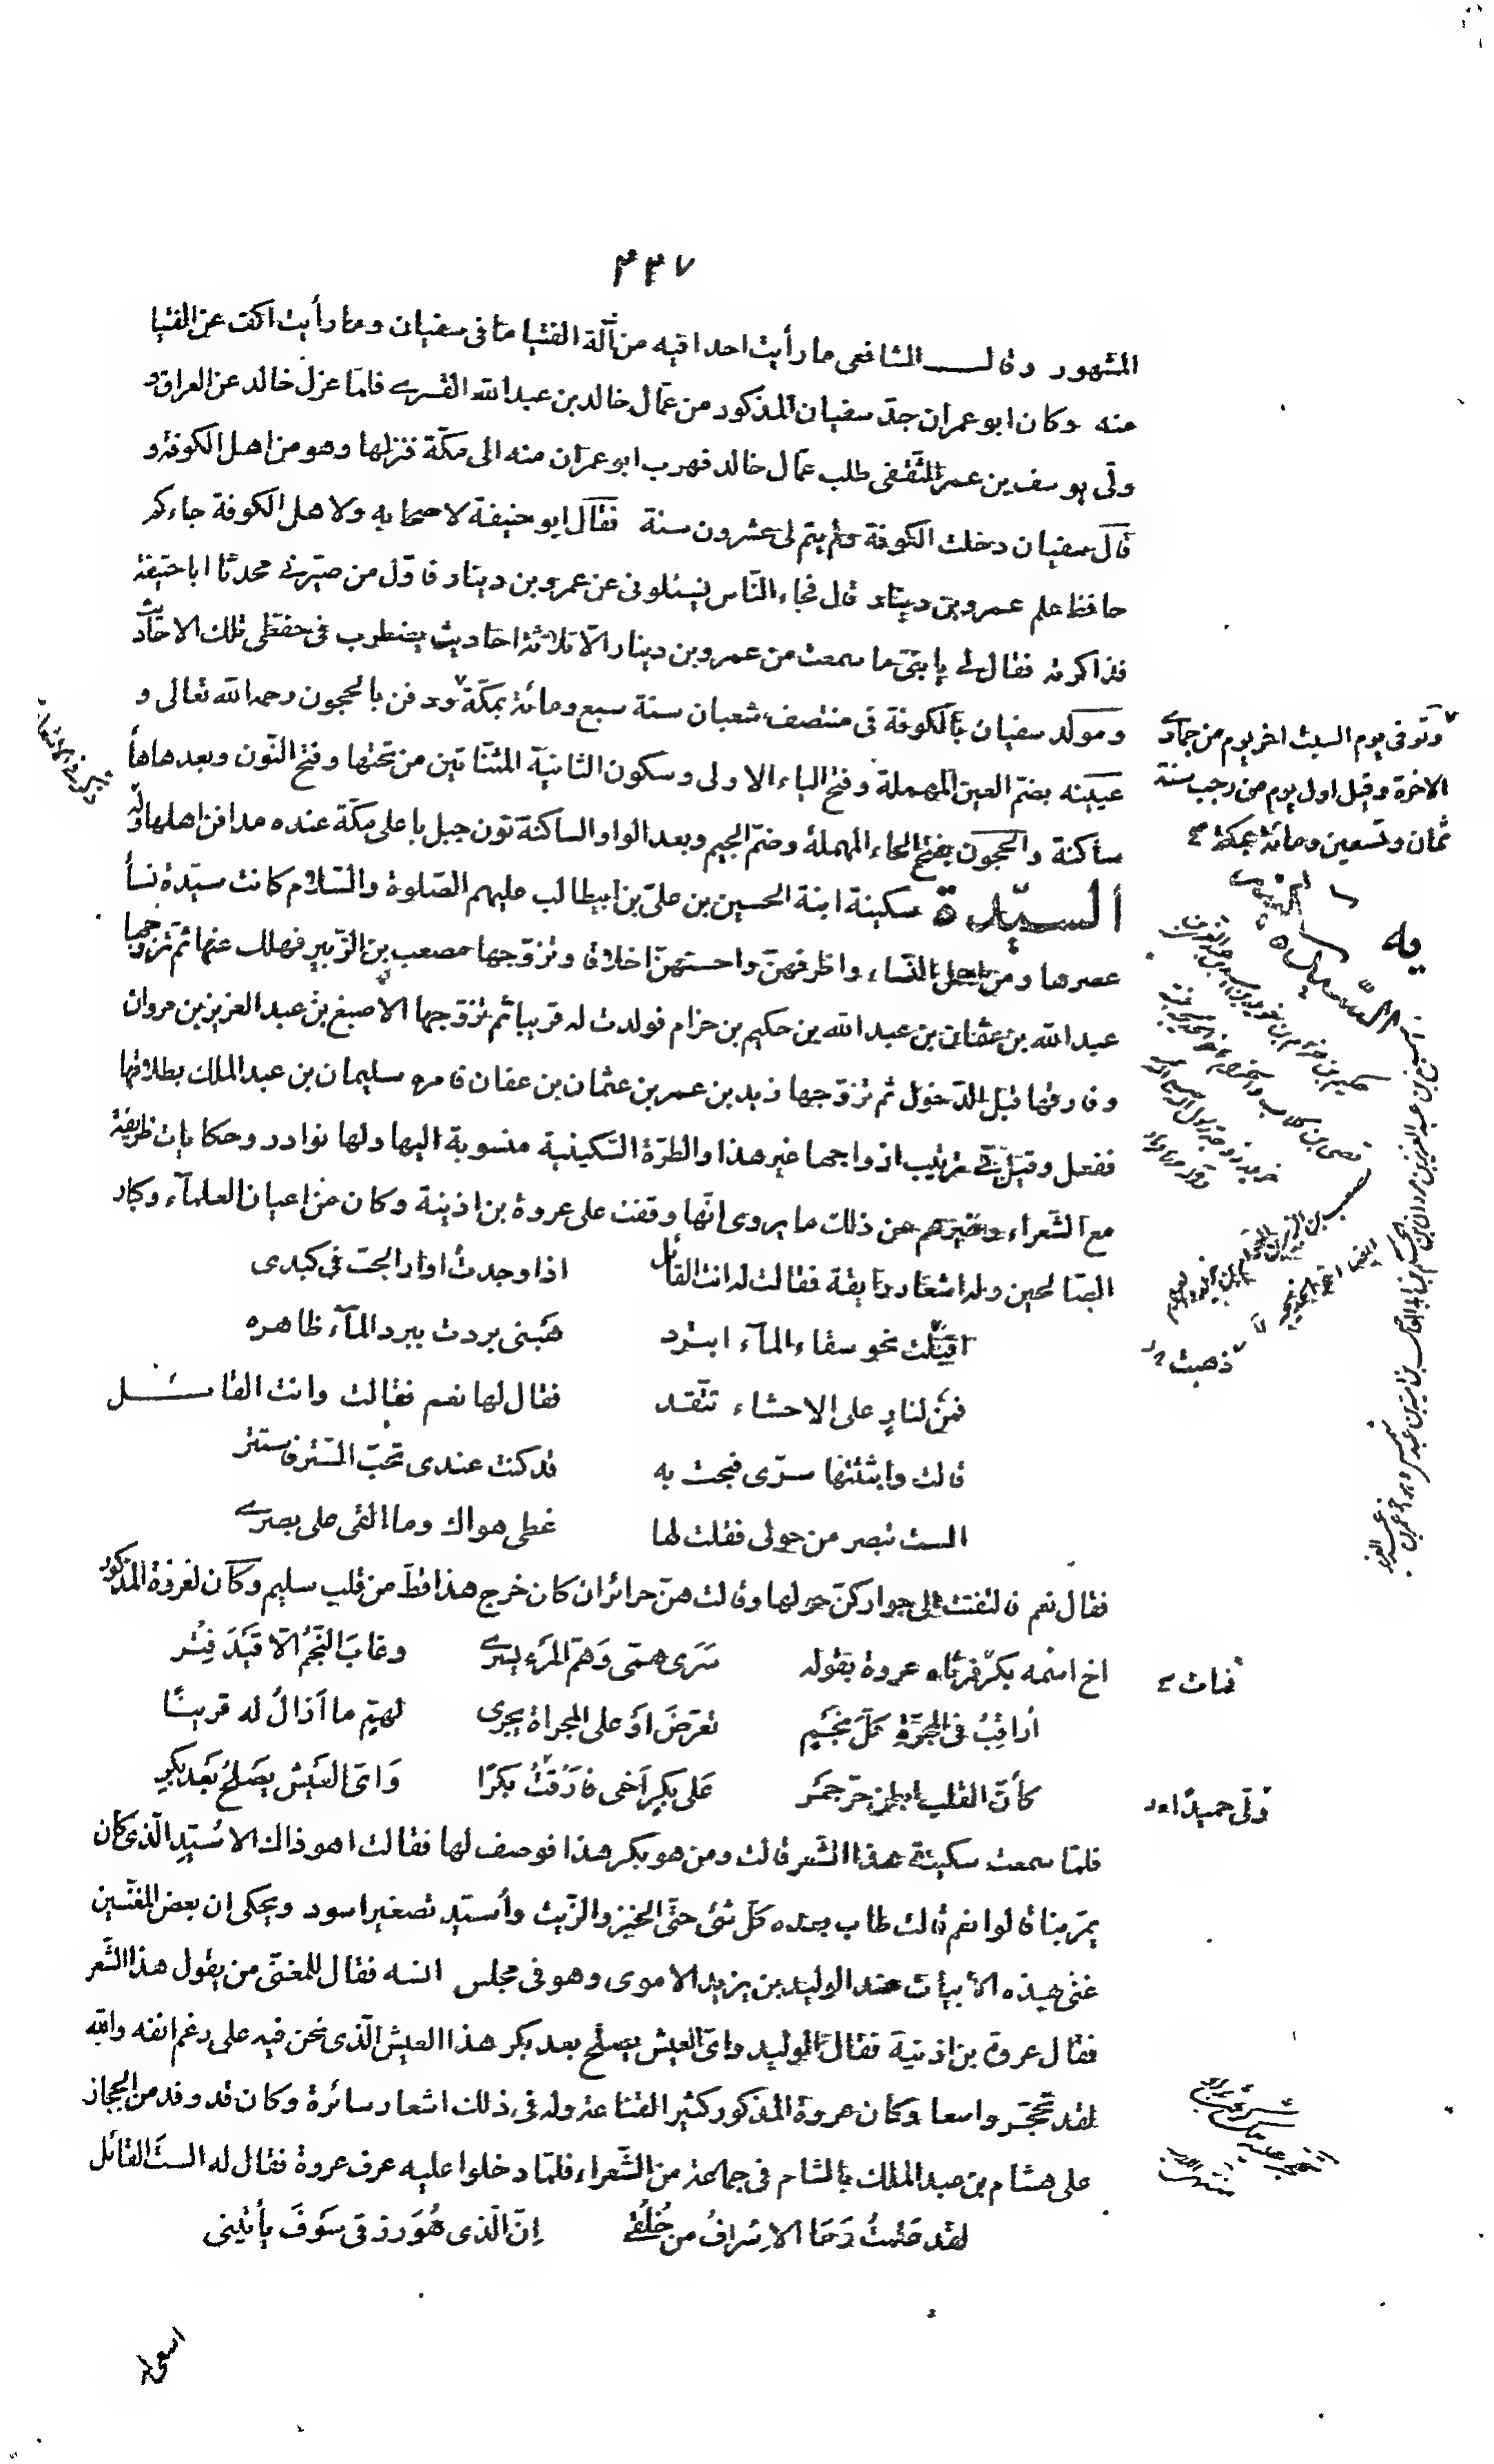 ٢٣٧
المشهور وقال الشافعى ما رأيت احدا فيه من آلة الفتيا ما فى سفيان وما رأيت اكف عن الفتيا
منه وكان ابو عمران جد سفيان المذكور من عمال خالد بن عبد الله القسرى فلما عزل خالد عن العراق و
ولى يوسف بن عمر الثقفى طلب عمال خالد فهرب ابو عمران منه الى مكة فنزلها وهو من اهل الكوفة و
قال سفيان دخلت الكوفة ولم يتم لى عشرون سنة فقال ابو حنيفة لاصحابه ولاهل الكوفة جاءكم
حافظ علم عمرو بن دينار قال فجاء الناس يسئلونى عن عمرو بن دينار فاول من صيرنى محدثا ابا حنيفة
فذاكرته فقال لى يا بنى ما سمعت من عمرو بن دينار الا ثلاثة احاديث يضطرب فى حفظى تلك الاحاديث
ومولد سفيان بالكوفة فى منتصف شعبان سنة سبع ومائة بمكة ودفن بالحجون رحمه الله تعالى و
عيينه بضم العين المهملة وفتح الياء الاولى وسكون الثانية المثناتين من تحتها وفتح النون وبعدها هاء
ساكنة والحجون بفتح الحاء المهملة وضم الجيم وبعد الواو الساكنة نون جبل باعلى مكة عنده مدافن اهلها
السيّدة سكينة ابنة الحسين بن علىّ بن ابيطالب عليهم الصلوة والسلام كانت سيّدة نسأ
عصرها ومن اجمل النساء واظرفهنّ واحسنهنّ اخلاقا وتزوّجها مصعب بن الزّبير فهلك عنها ثمّ تزوجها
عبد الله بن عثمان بن عبد الله بن حكيم بن حزام فولدت له قرينا ثم تزوّجها الاصبغ بن عبد العزيز بن مروان
وفارقها قبل الدّخول ثم تزوّجها زيد بن عمر بن عثمان بن عفان فامره سليمان بن عبد الملك بطلاقها
ففعل وقيل فى ترتيب ازواجها غير هذا والطرّة السكينية منسوبة اليها ولها نوادر وحكايات ظريفة
مع الشعراء وغيرهم من ذلك ما يروى انّها وقفت على عروة بن اذينة وكان من اعيان العلمآء وكبار
الصالحين وله اشعار رايقة فقالت له انت القائل اذا وجدت اوار الحبّ فى كبدى
اقبلت نحو سقاء المآء ابترد هبنى بردت ببرد المآء ظاهره
فمن لنارٍ على الاحشاء تتّقد فقال لها نعم فقالت وانت القائل
قالت وابثثتها سرّى فبحت به قد كنت عندى تحبّ السّتر فاستتر
الست تبصر من حولى فقلت لها غطى هواك وما القى على بصرى
فقال نعم فالتفتت الى جوار كنّ حولها وقالت هنّ حرائر ان كان خرج هذا قطّ من قلب سليم وكان لعروة المذكور
اخ اسمه بكر فرثاه عروة بقوله سَرَى همّى وَهمّ المرْء يسرى وغابَ النّجمُ الّا قيدَ فِتْر
أراقبُ فى المجرّة كلّ نجمٍ تعرّضَ اوْ على المجراة يجرى لهمّ ما أزالُ له قرينًا
كأنّ القلب ابطن حرّ جمر على بكرٍ أخى فارقتُ بكرًا وَاىّ العيش يصلحُ بعد بكرِ
فلمّا سمعت سكينة هذا الشّعر قالت ومن هو بكر هذا فوصف لها فقالت اهو ذاك الاسيّد الّذى كان
يمرّ بنا قالوا نعم قالت طاب بعده كلّ شئ حتّى الخبز والزّيت وأسيّد تصغير اسود ويحكى ان بعض المغنّين
غنّى هذه الابيات عند الوليد بن يزيد الاموى وهو فى مجلس انسه فقال للمغنّى من يقول هذا الشّعر
فقال عروة بن اذينة فقال الوليد واىّ العيش يصلح بعد بكر هذا العيش الّذى نحن فيه على رغم انفه والله
لقد تحجّر واسعا وكان عروة المذكور كثير القناعة وله فى ذلك اشعار سائرة وكان قد وفد من الحجاز
على هشام بن عبد الملك بالشام فى جماعة من الشّعراء فلمّا دخلوا عليه عرف عروة فقال له الستَ القائل
لقد علمتُ وَمَا الاِسْرافُ من خُلُقى اِنّ الّذى هُوَ رزقى سَوفَ يأتينى
اسعى له
وتوفى يوم السبت اخر يوم من جمادى
الاخرة وقيل اول يوم من رجب سنة
ثمان وتسعين ومائة بمكة
يه
السيدة
ذهبت
فمات
ولى حميدًا